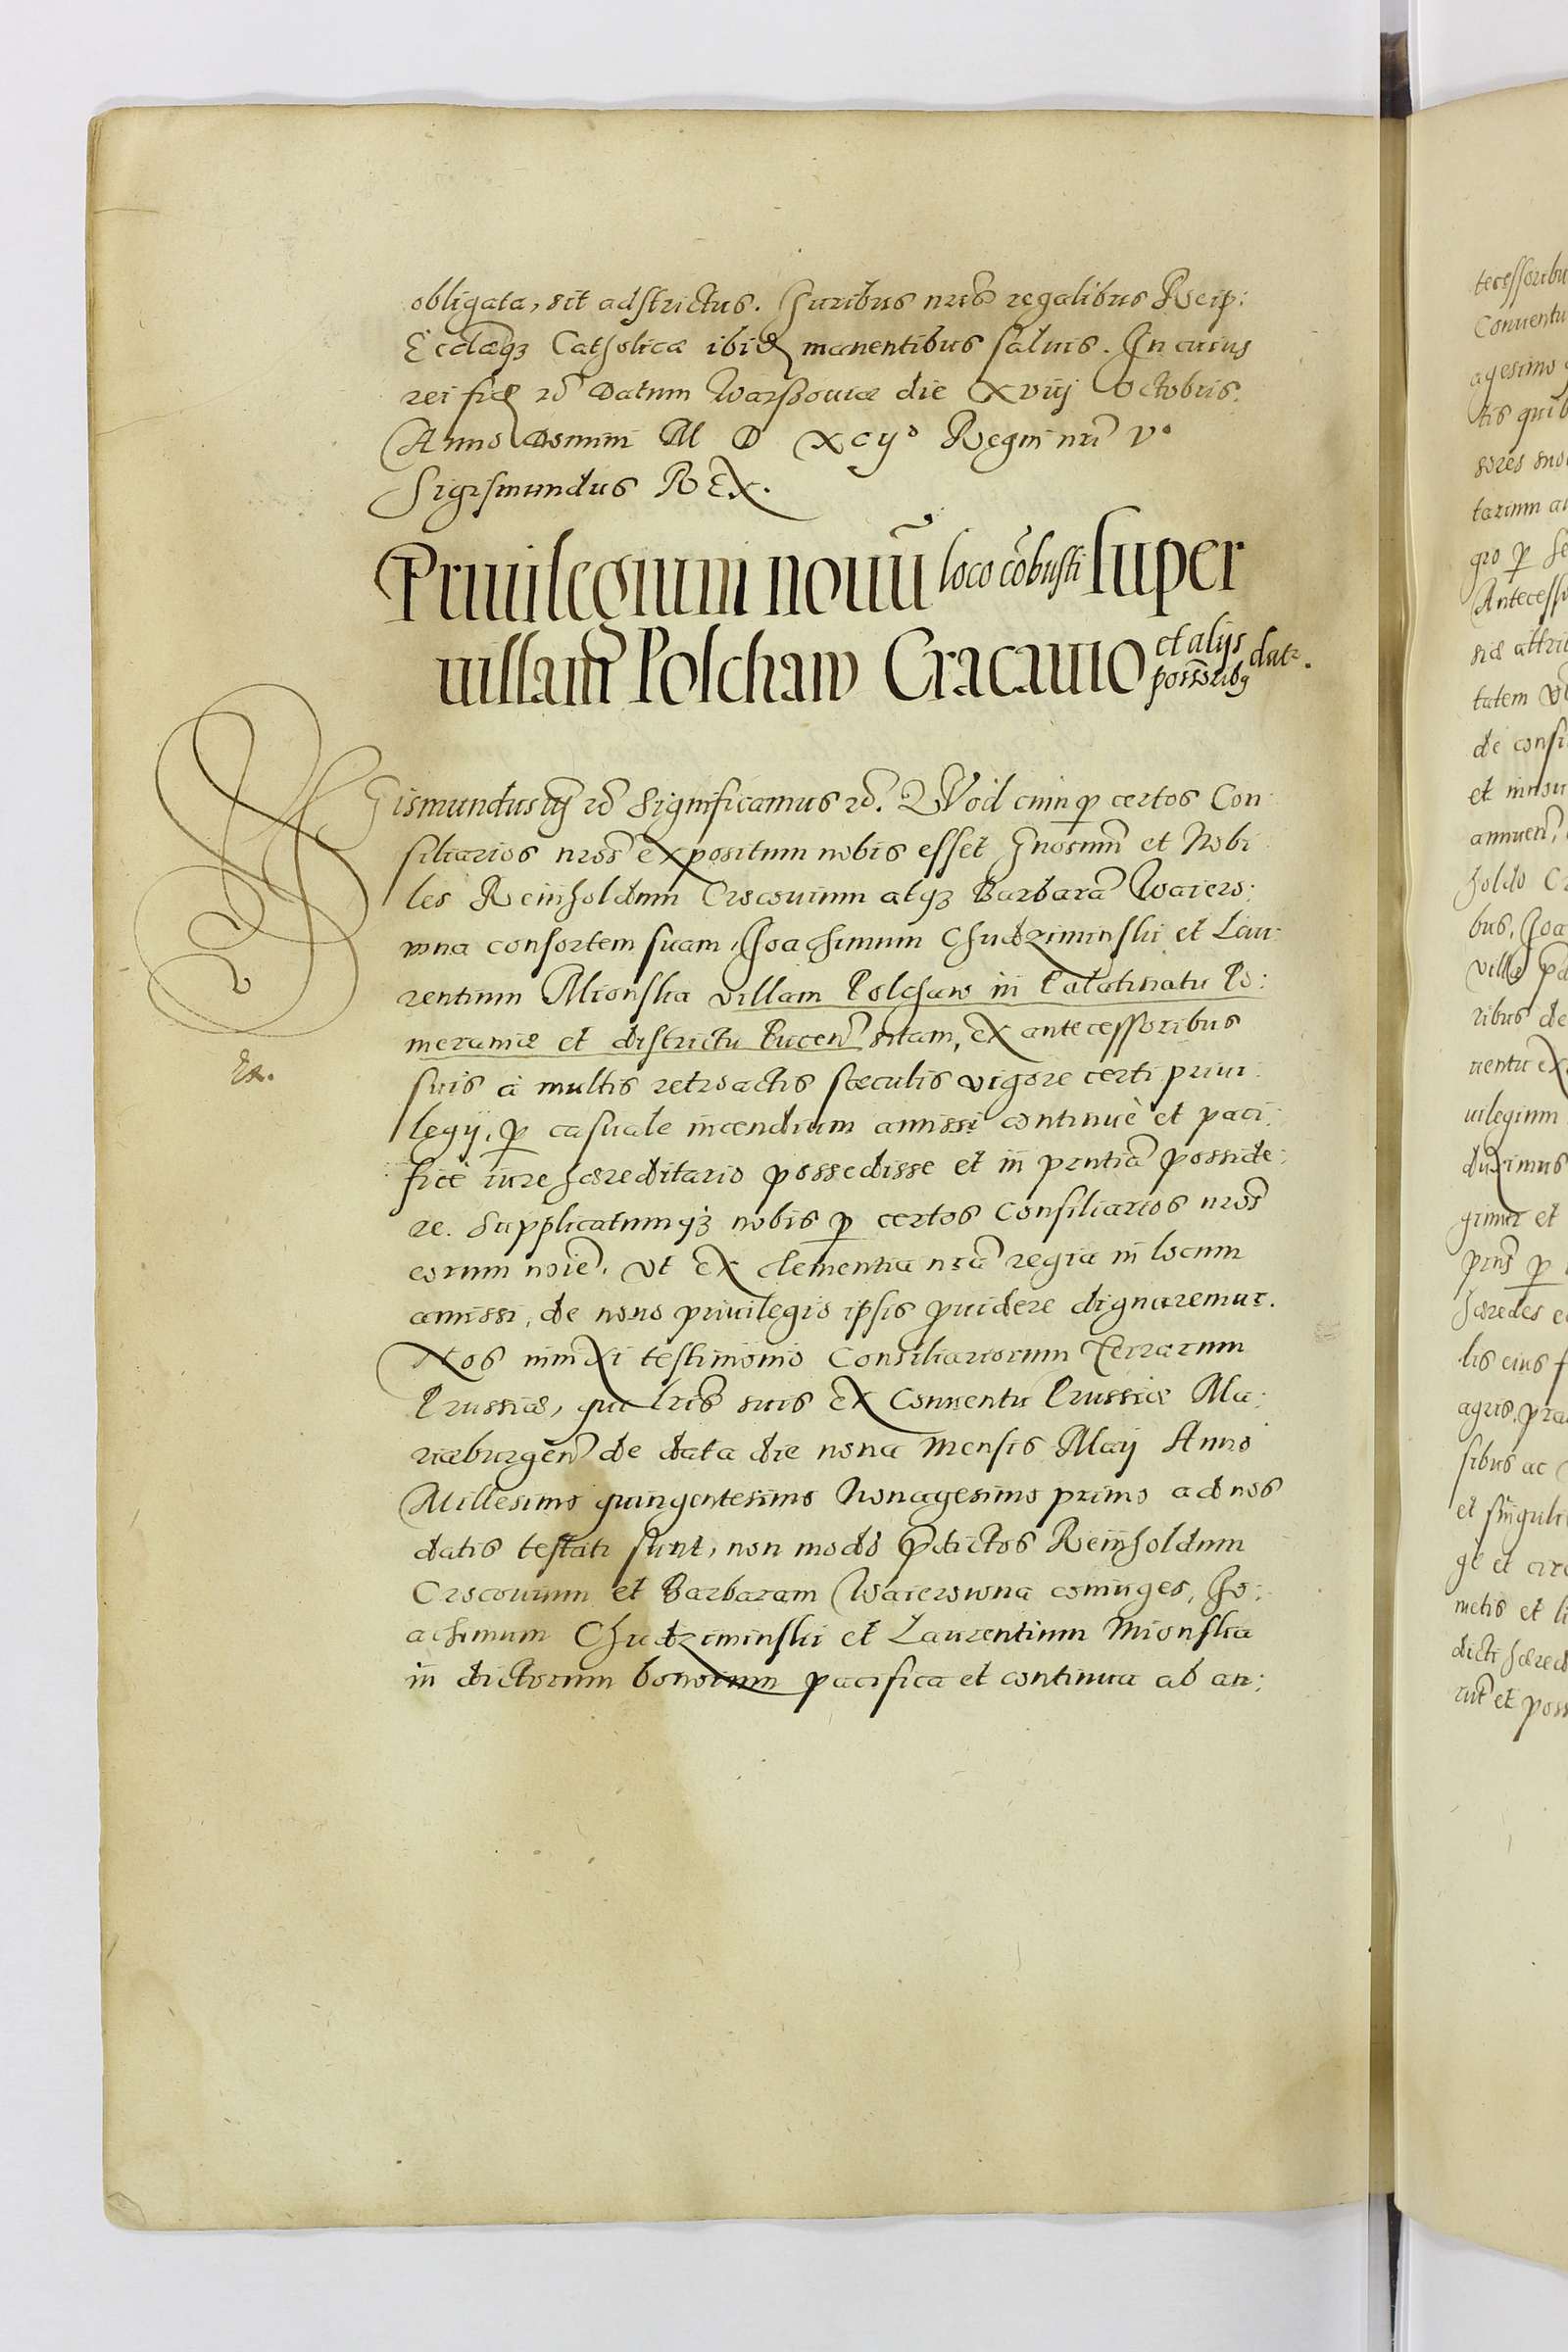 obligata, sit adstrictus. Juribus nris regalibus Reip:
Ecclæq3 Catholicæ ibid manentibus saluis. In cuius
rei fid rc Datum Warssouiæ die xviij Octobris.
Anno Domini M D xcijo Regni nri vo
Sigismundus REx.
Priuilegium nouũ loco cõbusti super
uillam Polchaw Cracauio et alijs possoribq dat.
SGismundus iij rc Significamus rc. QVod cum p certos Con
siliarios nros expositum nobis esset Gnosum et Nobi
les Reinholdum Crocouium atq3 Barbarã Waiero:
wna consortem suam, Joachimum Chudziminski et Lau:
rentium Mionska villam Polchaw in Palatinatu Po:
meraniæ et districtu Pucen sitam, ex antecessoribus
suis à multis retroactis sæculis vigore certi priui:
legij, p casuale incendium amissi continuè et paci:
ficè iure hæreditario possedisse et in pntia posside:
re. Supplicatumq3 nobis p certos Consiliarios nros
eorum noie, vt ex clementia nra regia in locum
amissi, de nouo priuilegio ipsis puidere dignaremur.
Nos innixi testimonio Consiliariorum Terrarum
Prussiæ, qui lris suis ex Conuentu Prussiæ Ma:
riæburgen de data die nona mensis Maij Anno
Millesimo quingentesimo Nonagesimo primo ad nos
datis testati sunt, non modo pdictos Reinholdum
Crocouium et Barbaram Waierowna coniuges, Jo:
achimum Chudziminski et Laurentium Mionska
in dictorum bonorum pacifica et continua ab an:
tecessoribu
Conuentu
agesimo
tis quib
sores suo
tarum au
gro p se
Antecesso
siæ attri
tatem
de consi
et innou
annuen
holdo Cr
bus, Joa
villæ
ribus de
uentu ex
uilegium
duximus
grimur et
p
hæredes e
lis eius f
agris, pra
sibus ac
et singuli
ge et circ
metis et li
dicti hæred
et poss